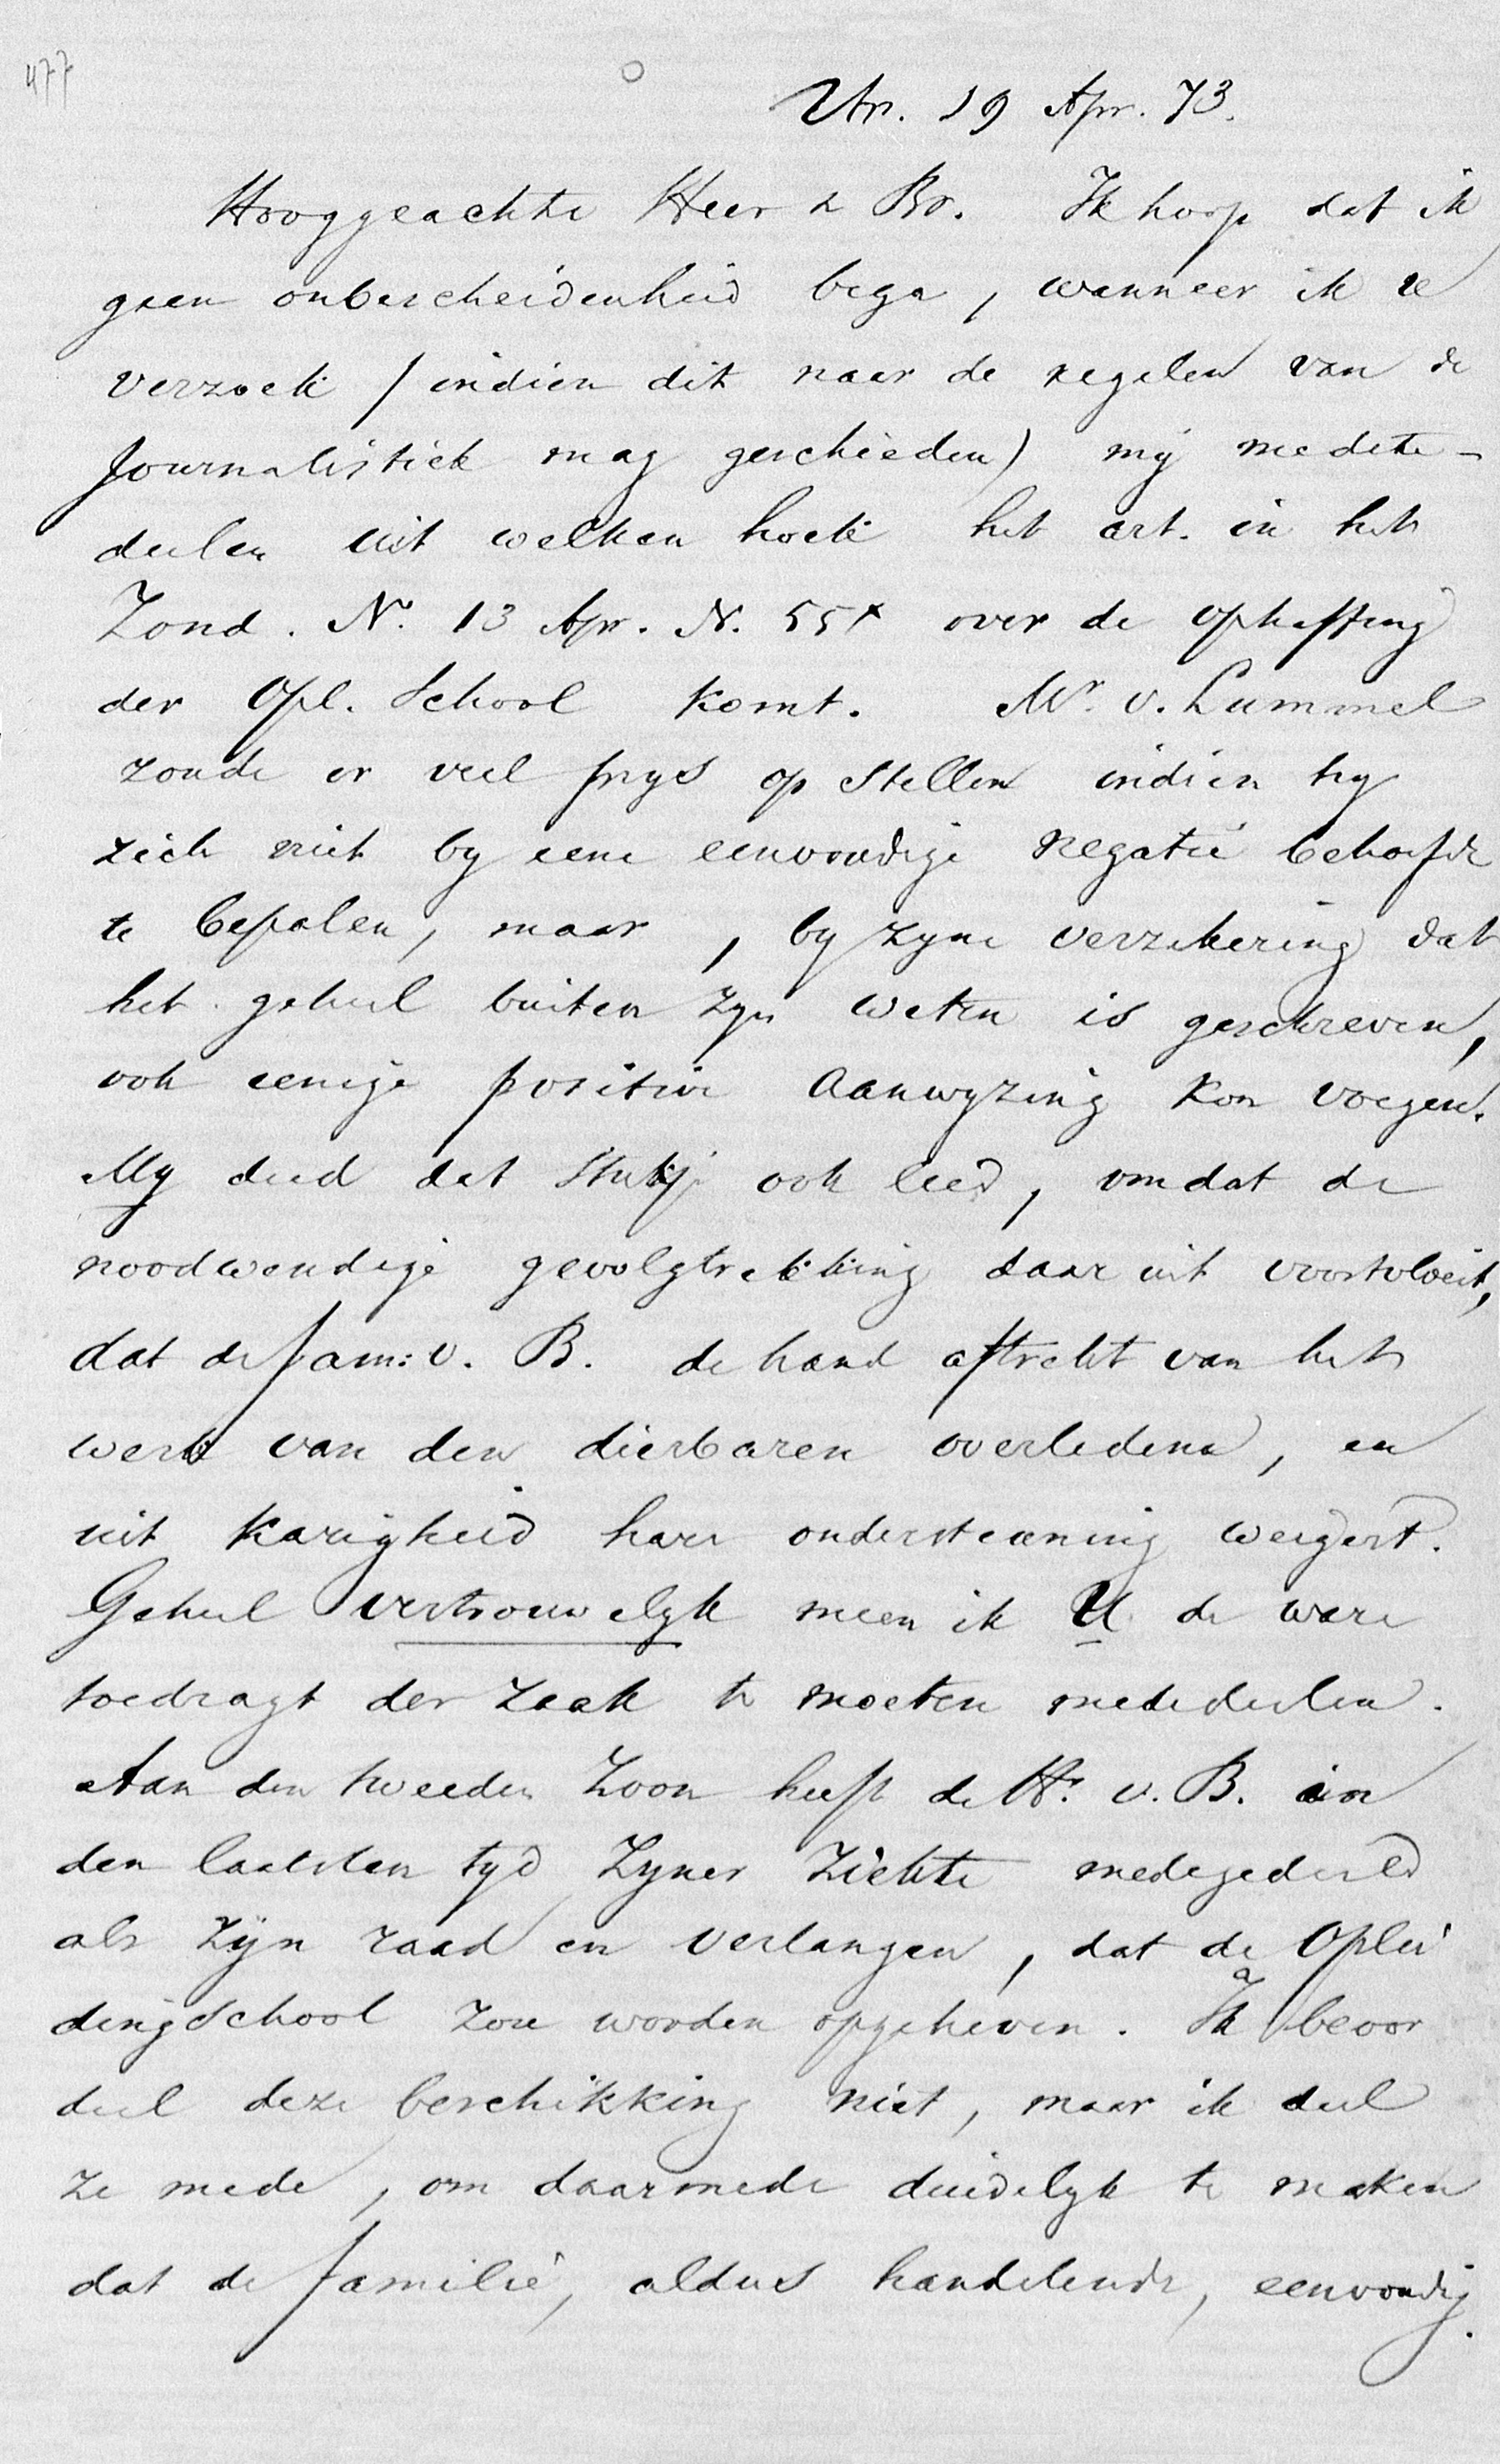 477
Utr. 19 Apr. 73.
Hooggeachte Heer & Br. Ik hoop dat ik
geen onbescheidenheid bega, wanneer ik U
verzoek (indien dit naar de regelen van de
Journalistiek mag geschieden) mij mede te-
deelen uit welken hoek het art. in het
Zond. No. 13 Apr. N. 55x over de opheffing
der Opl. School komt. Mr. v. Lummel
zoude er veel prys op stellen indien hy
zich niet by eene eenvoudige negatie behoefde
te bepalen, maar, by zyne verzekering dat
het geheel buiten zyn weten is geschreven,
ook eenige positive aanwyzing kon voegen.
My deed dat stukje ook leed, omdat de
noodwendige gevolgtrekking daar uit voortvloeit,
dat de fam: v. B. de hand aftrekt van het
werk van den dierbaren overledene, en
uit karigheid hare ondersteuning weigert.
Geheel vertrouwelyk meen ik U de ware
toedragt der zaak te moeten mededeelen.
Aan den tweeden zoon heeft de Hr. v. B. in
den laatsten tyd zyner ziekte medegedeeld
als zijn raad en verlangen, dat de Oplei
dingschool zou worden opgeheven. Ik bevor
deel deze beschikking niet, maar ik deel
ze mede, om daarmede duidelyk te maken
dat de familie, aldus handelende, eenvoudig